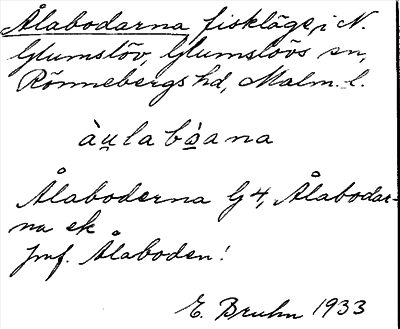 Ålabodarna fiskläge, i N.
Glumslöv, Glumslövs sn,
Rönnebergs hd, Malm. l.
àu̯labòana
Ålaboderna G4, Ålabodar-
na ek
Jmf. Ålaboden!
E. Bruhn 1933